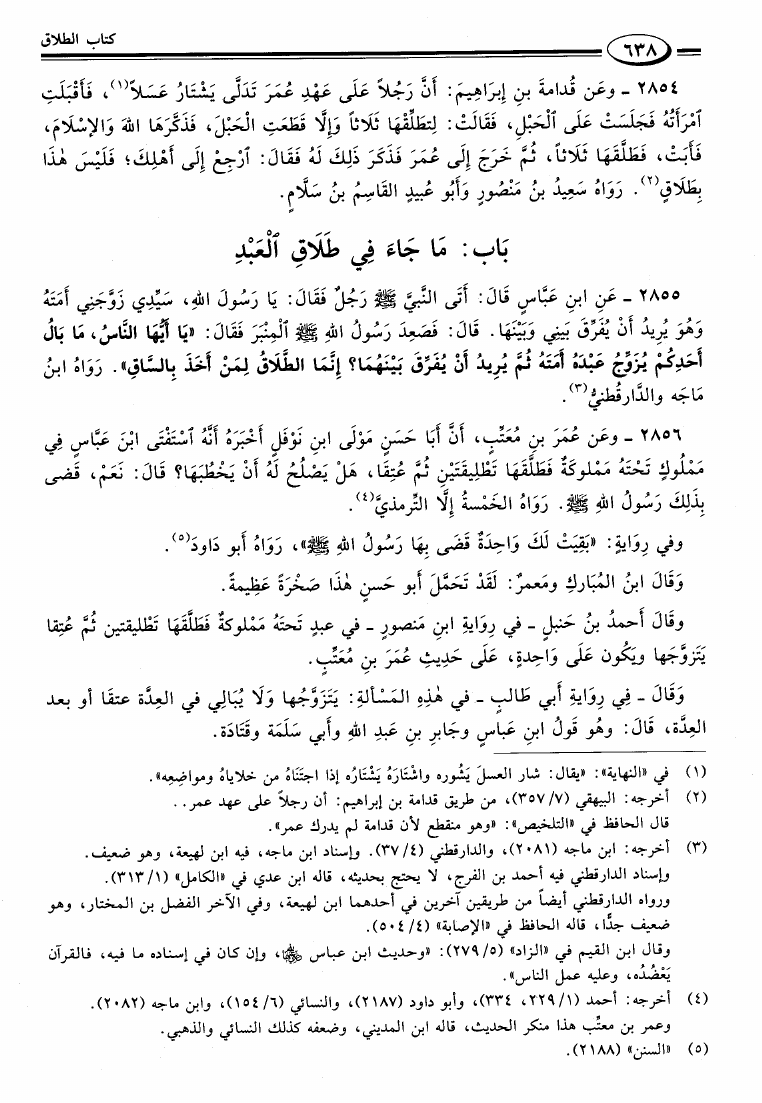 ٦٣٨
كتاب الطلاق
٢٨٥٤ ـ وعَن قُدامةَ بنِ إبرَاهِيمَ: أَنَّ رَجُلاً عَلَى عَهْدِ عُمَرَ تَدَلَّى يَشْتَارُ عَسَلاً(١)، فَأَقْبَلَتِ
ٱمْرَأَتُهُ فَجَلَسَتْ عَلَى ٱلْحَبْلِ، فَقَالَتْ: لِتطَلِّقْها ثَلَاثاً وَإِلَّا قَطَعَتِ الْحَبْلَ، فَذَكَّرَهَا اللهَ وَالإسْلَامَ،
فَأَبَتْ، فَطَلَّقَهَا ثَلَاثاً، ثُمَّ خَرَجَ إِلَى عُمَرَ فَذَكَرَ ذٰلِكَ لَهُ فَقَالَ: ٱرْجِعْ إِلَى أَهْلِكَ؛ فَلَيْسَ هٰذَا
بِطَلَاقٍ(٢). رَوَاهُ سَعِيدُ بنُ مَنْصُورٍ وَأَبُو عُبيدٍ القَاسِمُ بنُ سَلَّامٍ.
بَاب: مَا جَاءَ فِي طَلَاقِ ٱلْعَبْدِ
٢٨٥٥ ـ عَنِ ابنِ عَبَّاسٍ قَالَ: أَتَى النَّبيَّ ﷺ رَجُلٌ فَقَالَ: يَا رَسُولَ اللهِ، سَيِّدِي زَوَّجَنِي أَمَتَهُ
وَهُوَ يُرِيدُ أَنْ يُفَرِّقَ بَيْنِي وَبَيْنَهَا. قَالَ: فَصَعِدَ رَسُولُ اللهِ ﷺ ٱلْمِنْبَرَ فَقَالَ: «يَا أَيُّهَا النَّاسُ، مَا بَالُ
أَحَدِكُمْ يُزَوِّجُ عَبْدَهُ أَمَتَهُ ثُمَّ يُرِيدُ أَنْ يُفَرِّقَ بَيْنَهُمَا؟ إِنَّمَا الطَّلَاقُ لِمَنْ أَخَذَ بِالسَّاقِ». رَوَاهُ ابنُ
مَاجَه والدَّارقُطنيُّ(٣).
٢٨٥٦ ـ وعَن عُمَرَ بنِ مُعَتِّبٍ، أَنَّ أَبَا حَسَنٍ مَوْلَى ابنِ نَوْفَلٍ أَخْبَرَهُ أَنَّهُ ٱسْتَفْتَى ابْنَ عَبَّاسٍ فِي
مَمْلُوكٍ تَحْتَهُ مَمْلوكَةٌ فَطَلَّقَهَا تَطْلِيقَتَيْنِ ثُمَّ عُتِقَا، هَلْ يَصْلُحُ لَهُ أَنْ يَخْطُبَهَا؟ قَالَ: نَعَمْ، قَضى
بِذٰلِكَ رَسُولُ اللهِ ﷺ. رَوَاهُ الخَمْسةُ إِلَّا التِّرمذيَّ(٤).
وفي رِوَايةٍ: «بَقِيَتْ لَكَ وَاحِدَةٌ قَضَى بِهَا رَسُولُ اللهِ ﷺ»، رَوَاهُ أَبو دَاودَ(٥).
وَقَالَ ابنُ المُبَاركِ ومَعمرٌ: لَقَدْ تَحَمَّلَ أَبو حَسنٍ هٰذَا صَخْرَةً عَظِيمةً.
وقَال أَحمدُ بنُ حَنبلٍ ـ في رِوَايةِ ابنِ مَنصورٍ ـ في عبدٍ تَحتَهُ مَمْلوكةٌ فَطَلَّقَهَا تَطْليقتين ثُمَّ عُتِقا
يَتَزوَّجها ويَكُون عَلَى وَاحِدةٍ، عَلَى حَديثِ عُمَرَ بنِ مُعَتِّبٍ.
وَقَالَ ـ فِي رِوَايةِ أَبي طَالبٍ ـ في هٰذِهِ المَسْأَلةِ: يَتَزوَّجُها وَلَا يُبَالِي في العِدَّة عتقَا أو بعد
العِدَّة، قَالَ: وهُو قَولُ ابنِ عَباسٍ وجَابرِ بنِ عَبدِ اللهِ وأَبي سَلَمَة وقَتَادَة.
(١) في «النهاية»: «يقال: شار العسلَ يَشُوره واشْتَارَهُ يَشْتَارُه إذا اجتَنَاهُ من خلاياهُ ومواضِعِه».
(٢) أخرجه: البيهقي (٣٥٧/٧)، من طريق قدامة بن إبراهيم: أن رجلاً على عهد عمر..
قال الحافظ في «التلخيص»: «وهو منقطع لأن قدامة لم يدرك عمر».
(٣) أخرجه: ابن ماجه (٢٠٨١)، والدارقطني (٣٧/٤). وإسناد ابن ماجه، فيه ابن لهيعة، وهو ضعيف.
وإسناد الدارقطني فيه أحمد بن الفرج، لا يحتج بحديثه، قاله ابن عدي في «الكامل» (٣١٣/١).
ورواه الدارقطني أيضاً من طريقين آخرين في أحدهما ابن لهيعة، وفي الآخر الفضل بن المختار، وهو
ضعيف جدًّا، قاله الحافظ في «الإصابة» (٥٠٤/٤).
وقال ابن القيم في «الزاد» (٢٧٩/٥): «وحديث ابن عباس رضي الله عنهما، وإن كان في إسناده ما فيه، فالقرآن
يَعْضُدُه، وعليه عمل الناس».
(٤) أخرجه: أحمد (٢٢٩/١، ٣٣٤)، وأبو داود (٢١٨٧)، والنسائي (١٥٤/٦)، وابن ماجه (٢٠٨٢).
وعمر بن معتِّب هذا منكر الحديث، قاله ابن المديني، وضعفه كذلك النسائي والذهبي.
(٥) «السنن» (٢١٨٨).